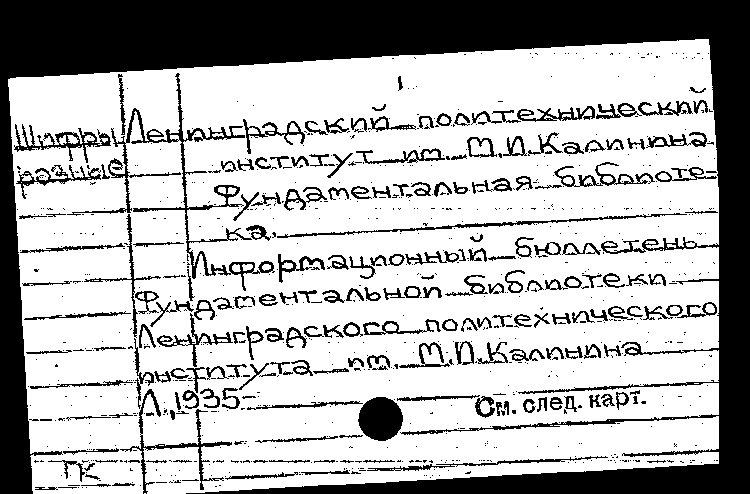 1
Шифры Ленинградский политехнический
разные институт им. М.И.Калинина
Фундаментальная библиоте-
ка.
Информационный бюллетень
Фундаментальной библиотеки
Ленинградского политехнического
института им. М.И.Калинина
Л.,1935-
См. след. карт.
ГК